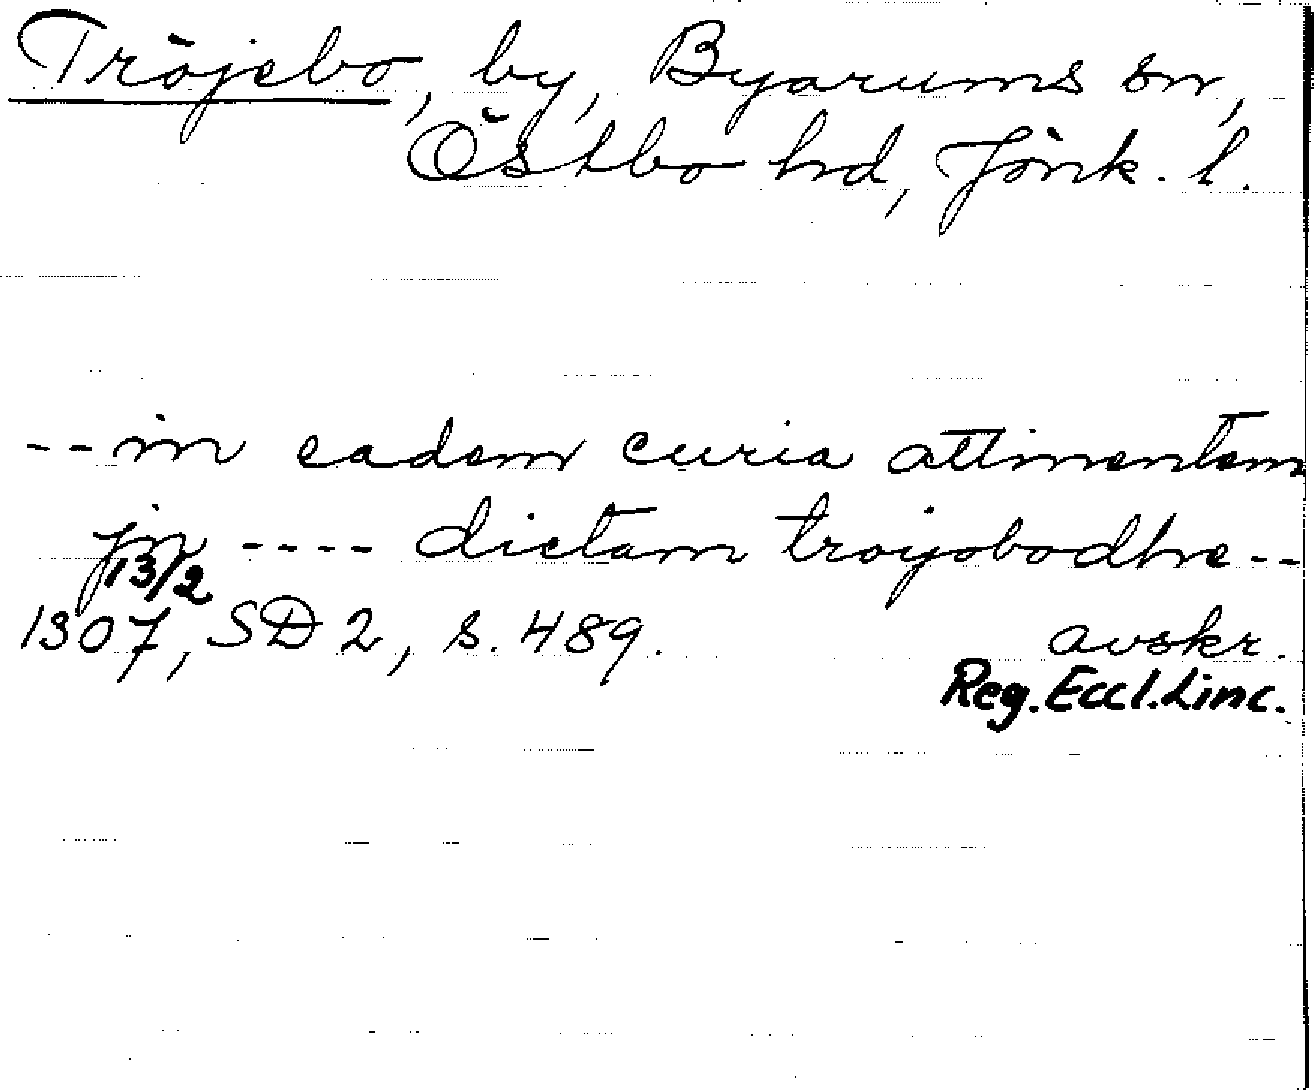 Tröjebo, by, Byarums sn,
Östbo hd, Jönk. l.
--in eadem curia attinentem
jn ---- dictam troyobodhe--
13/2
1307, SD 2, s. 489. avskr.
Reg. Eccl. Linc.